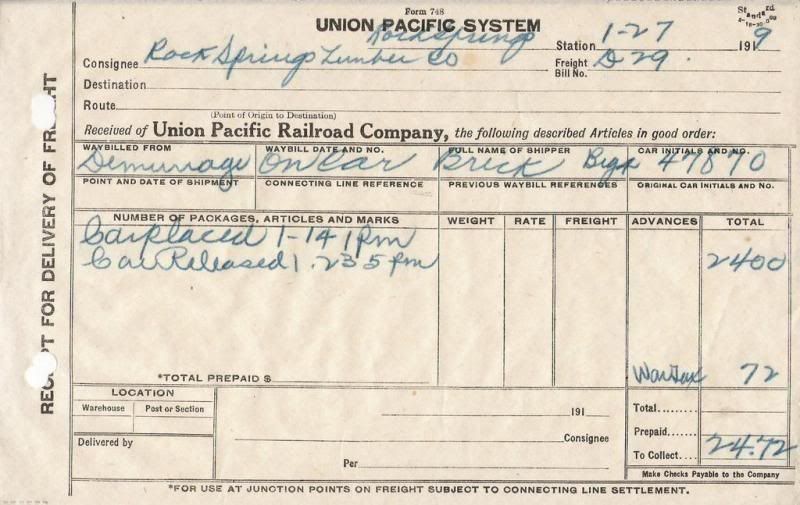 Form 748
Standard
UNION PACIFIC SYSTEM
Rocksprings Station 1-27 1919
Consignee Rock Springs Lumber Co Freight Bill No. D29.
Destination
Route
(Point of Origin to Destination)
Received of Union Pacific Railroad Company, the following described Articles in good order:
WAYBILLED FROM WAYBILL DATE AND NO. FULL NAME OF SHIPPER CAR INITIALS AND NO.
Demurrage On Car Brick 47870
POINT AND DATE OF SHIPMENT CONNECTING LINE REFERENCE PREVIOUS WAYBILL REFERENCES ORIGINAL CAR INITIALS AND NO.
NUMBER OF PACKAGES, ARTICLES AND MARKS WEIGHT RATE FREIGHT ADVANCES TOTAL
Car placed 1-14 1 pm
Car Released 1.23 5 pm 2400
War Tax 72
*TOTAL PREPAID $
LOCATION
Warehouse Post or Section
191
Total........
Consignee
Prepaid......
Delivered by
To Collect.... 24.72
Per
Make Checks Payable to the Company
*FOR USE AT JUNCTION POINTS ON FREIGHT SUBJECT TO CONNECTING LINE SETTLEMENT.
RECEIPT FOR DELIVERY OF FREIGHT